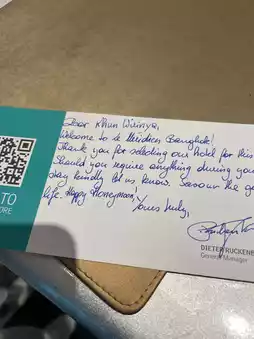 Dear Khun Wirinya,
Welcome to Le Méridien Bangkok!
Thank you for selecting our hotel for this
Should you require anything during your
stay kindly let us know. Savour the go
life. Happy Honeymoon!
Yours truly,
TO
ORE
DIETER RUCKENB
General Manager